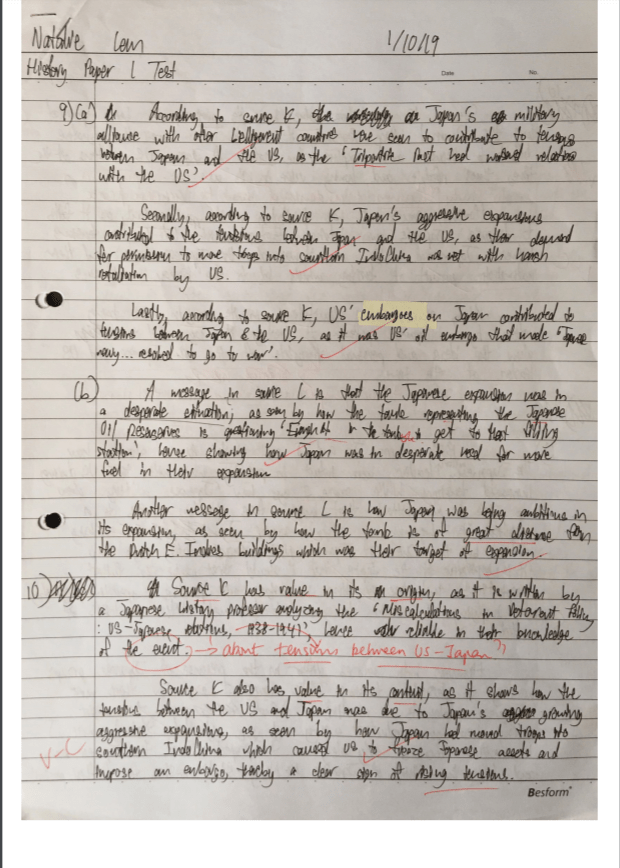 Natalie Lam 1/10/19
History Paper 1 Test
Date No.
9)(a) According to source K, Japan's military
alliance with other belligerent countries were seen to contribute to tensions
between Japan and the US, as the 'Tripartite Pact had worsened relations
with the US'.
Secondly, according to source K, Japan's aggressive expansions
contributed to the tensions between Japan and the US, as their demand
for permission to move troops into southern IndoChina was met with harsh
retaliation by US.
Lastly, according to source K, US' embargoes on Japan contributed to
tensions between Japan & the US, as it was US' oil embargo that made 'Japanese
navy... resolved to go to war'.
(b) A message in source L is that the Japanese expansion was in
a desperate situation, as seen by how the tank representing the Japanese
Oil Reserves is questioning 'Enough in the tank to get to that filling
station', hence showing how Japan was in desperate need for more
fuel in their expansion
Another message in source L is how Japan was being ambitious in
its expansion, as seen by how the tank is of great distance from
the Dutch E. Indies buildings which was their target of expansion.
10) Source K has value in its origin, as it is written by
a Japanese history professor analyzing the 'Miscalculations in Deterrent Policy
: US-Japanese relations, 1938-1941', hence reliable in their knowledge
of the event. → about tensions between US-Japan"
Source K also has value in its content, as it shows how the
tensions between the US and Japan was due to Japan's growing
aggressive expansions, as seen by how Japan had moved troops into
V-C southern IndoChina which caused US to freeze Japanese assets and
impose an embargo, thereby a clear sign of rising tensions.
Besform